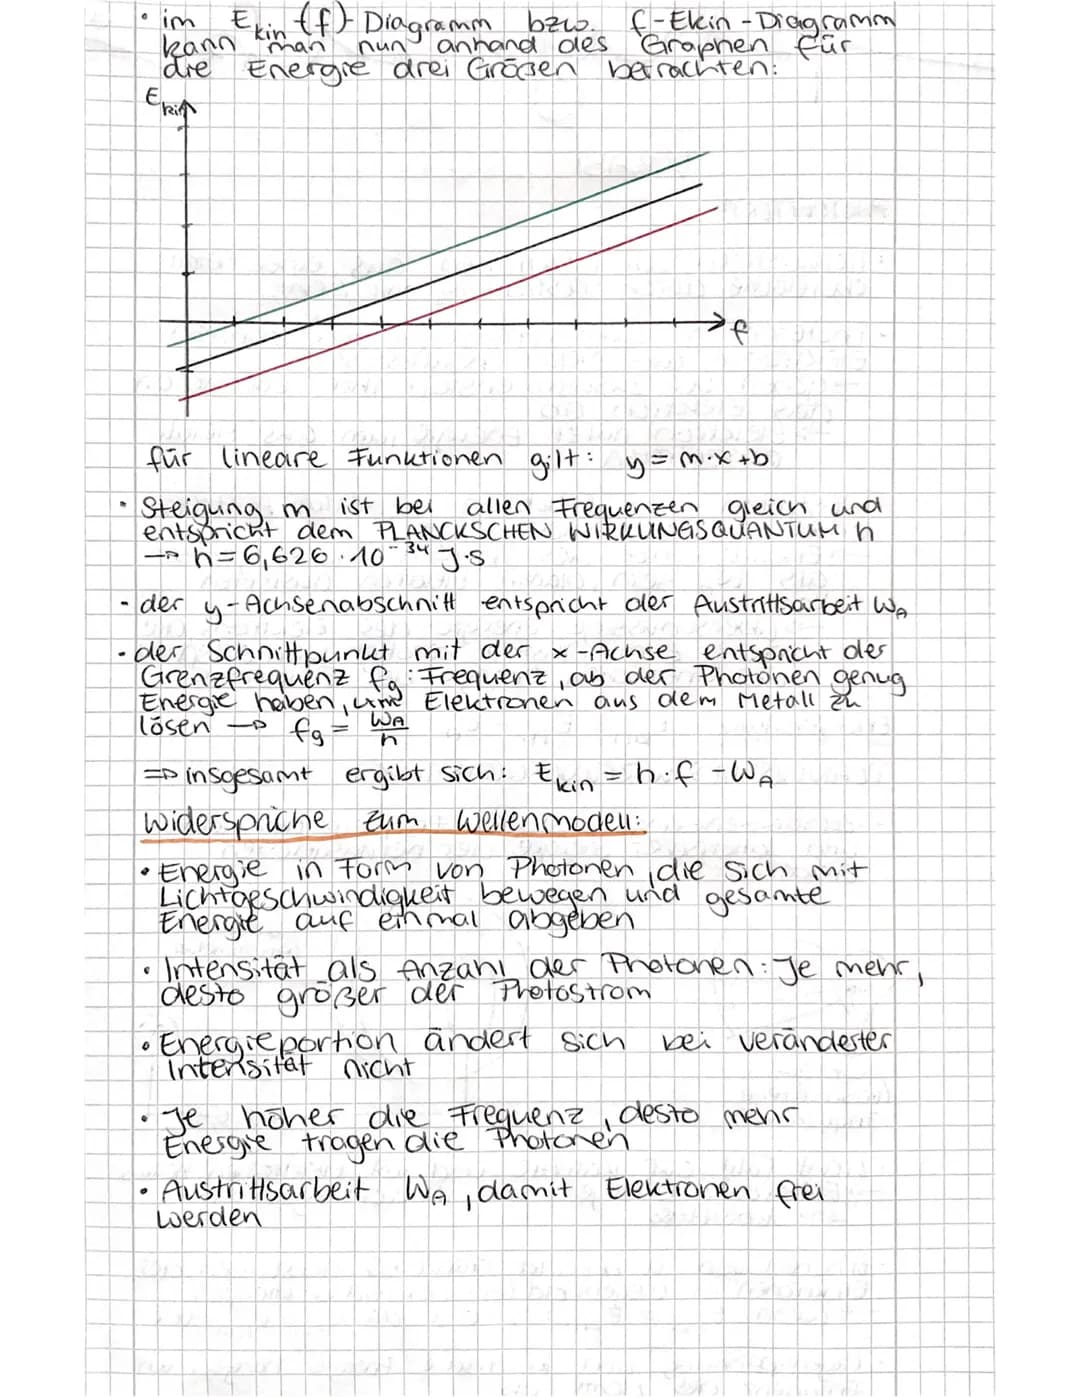 • im Ekin (f)-Diagramm bzw. f-Ekin-Diagramm
kann man nun anhand des Graphen für
die Energie drei Größen betrachten:
Ekin
f
für lineare Funktionen gilt: y = m·x+b
• Steigung m ist bei allen Frequenzen gleich und
entspricht dem PLANCKSCHEN WIRKUNGSQUANTUM h
→ h = 6,626 · 10⁻³⁴ J·s
• der y-Achsenabschnitt entspricht der Austrittsarbeit WA
• der Schnittpunkt mit der x-Achse entspricht der
Grenzfrequenz fg: Frequenz, ab der Photonen genug
Energie haben, ume Elektronen aus dem Metall zu
lösen → fg = WA/h
⇒ insgesamt ergibt sich: Ekin = h·f - WA
Widersprüche zum Wellenmodell:
• Energie in Form von Photonen, die sich mit
Lichtgeschwindigkeit bewegen und gesamte
Energie auf einmal abgeben
• Intensität als Anzahl der Photonen: Je mehr,
desto größer der Photostrom
• Energieportion ändert sich bei veränderter
Intensität nicht
• Je höher die Frequenz, desto mehr
Energie tragen die Photonen
• Austrittsarbeit WA, damit Elektronen frei
werden